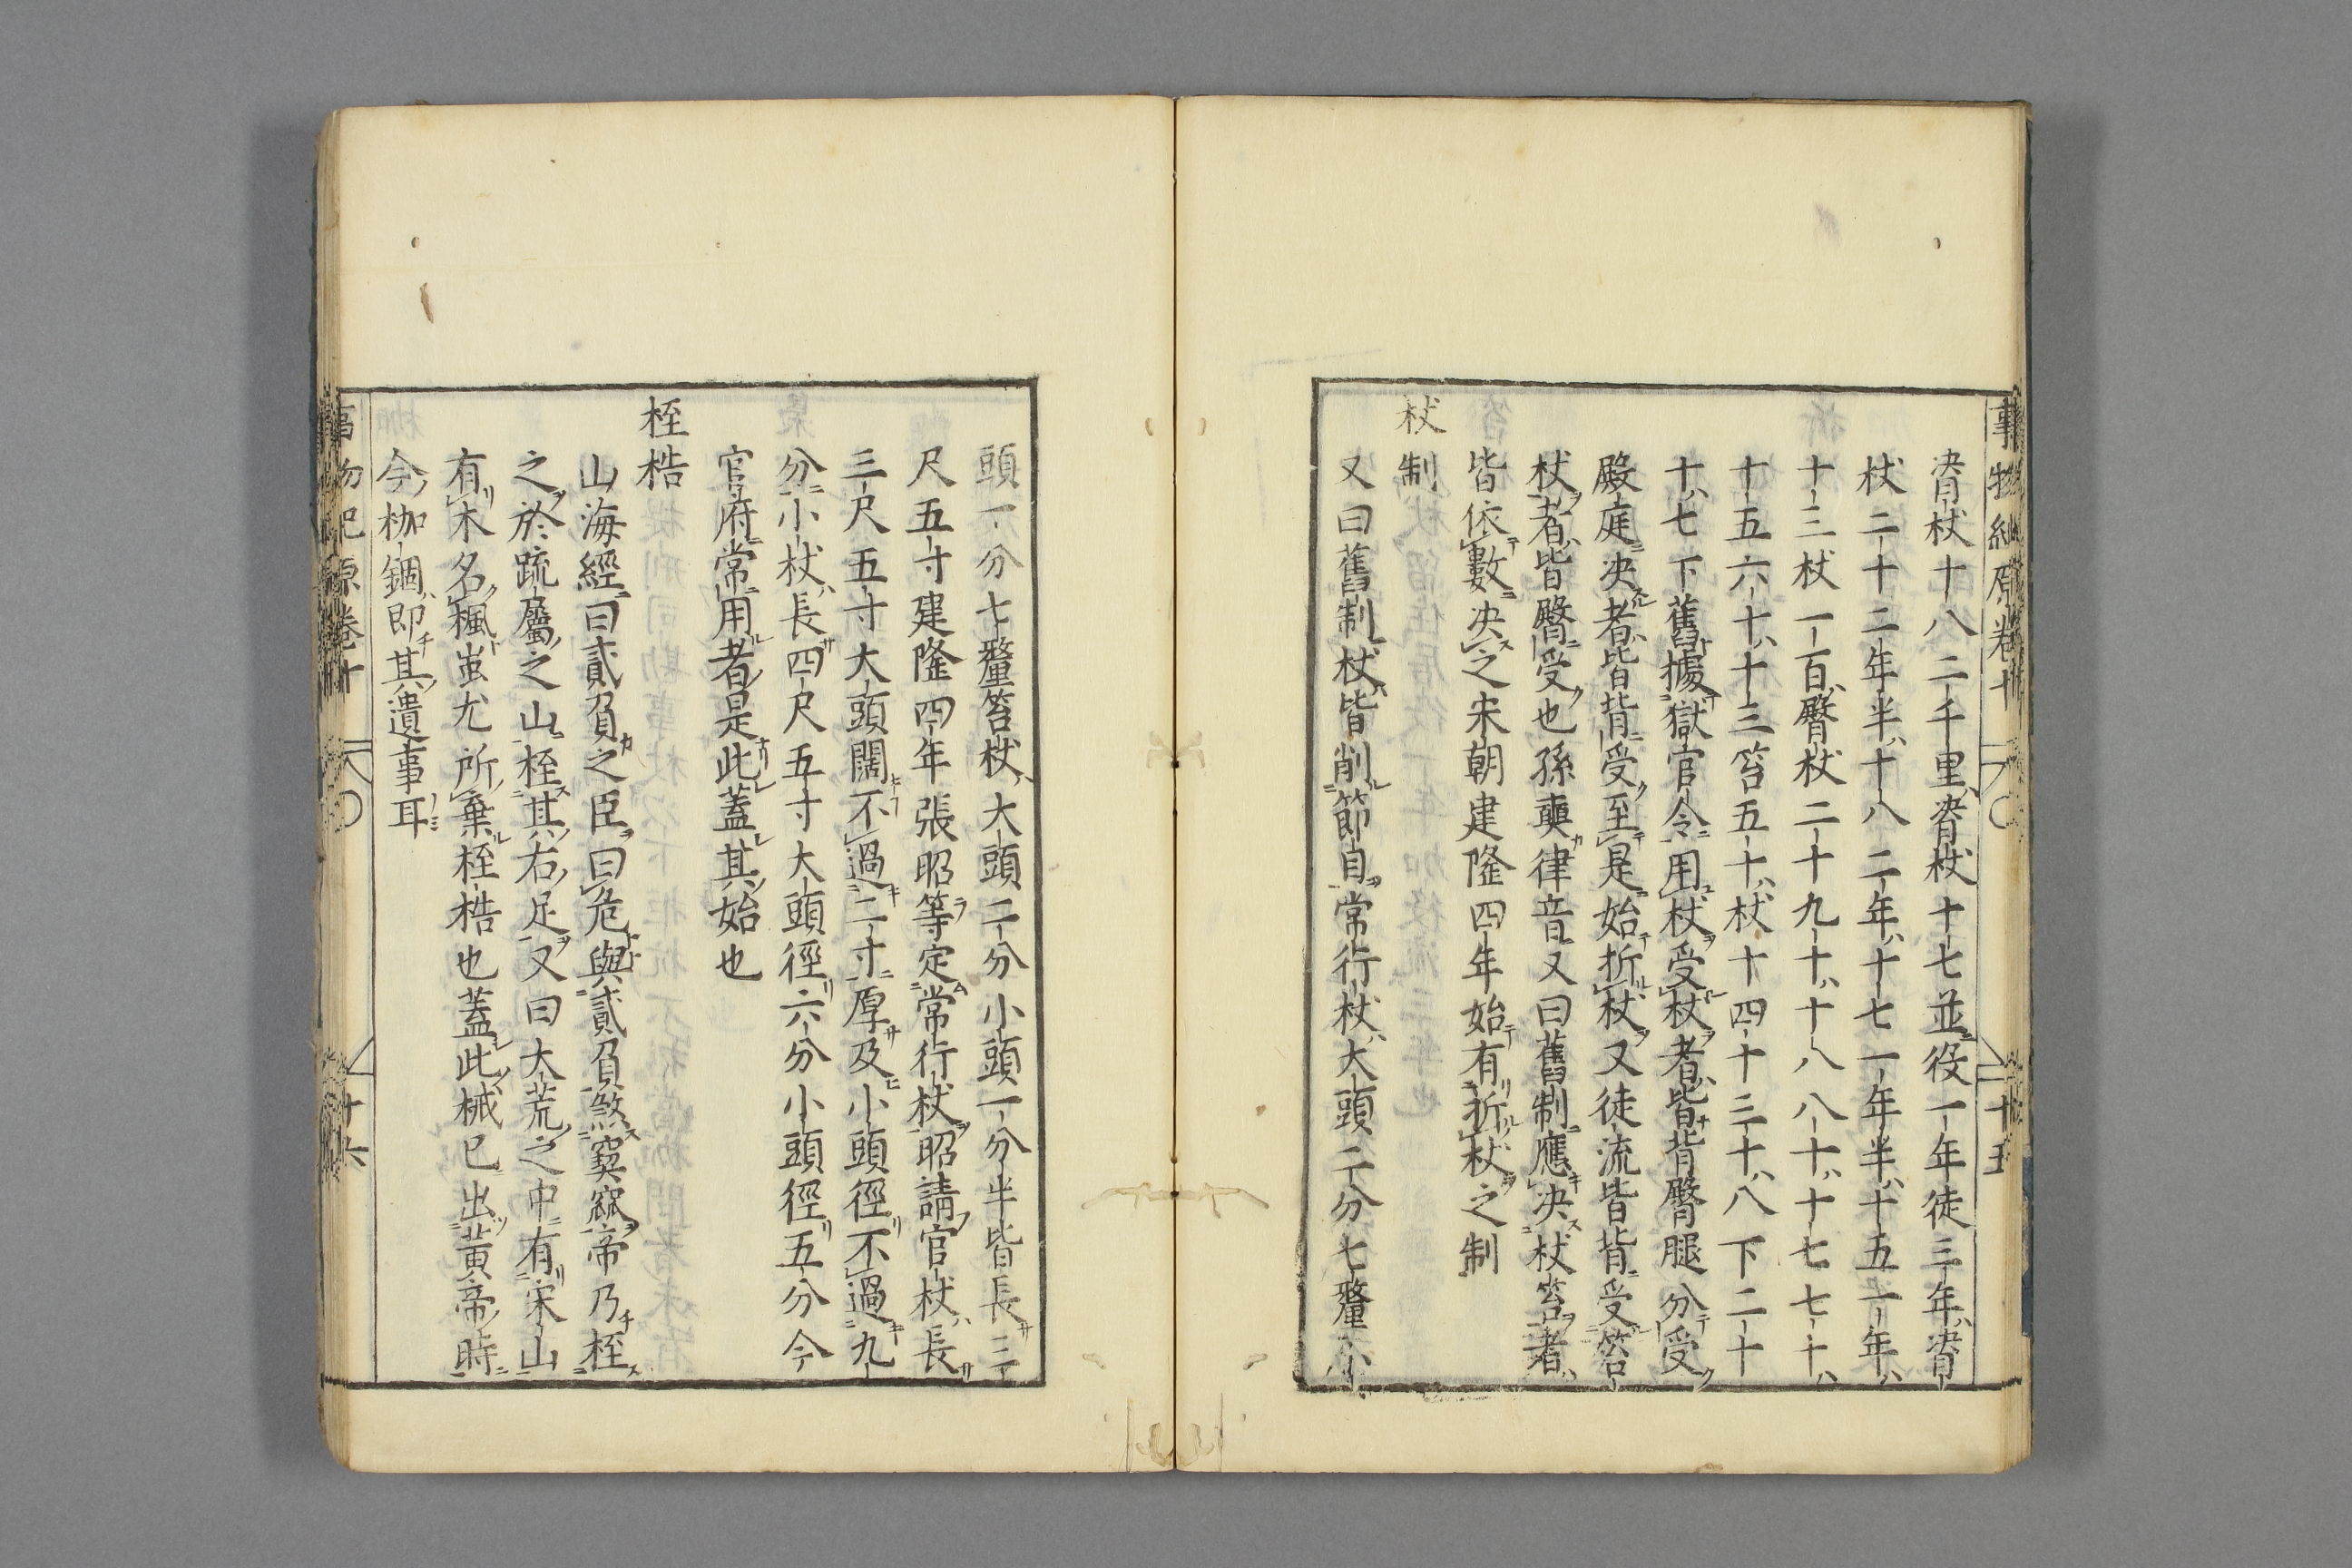 事物紀原卷十 十五
決脊杖十八二千里脊杖十七並役一年徒三年決脊
杖二十二年半十八二年十七一年半十五一年
十三杖一百臀杖二十九十十八八十十七七十
十五六十十三笞五十杖十四十三十八下二十
十七下舊據獄官令用杖受杖者皆背臀腿分受
殿庭決者皆背受至是始折杖又徒流皆背受笞
杖者皆臀受也孫奭律音又曰舊制應決杖笞者
皆依數決之宋朝建隆四年始有折杖之制
杖制
又曰舊制杖皆削節自常行杖大頭二分七釐小
頭一分七釐笞杖大頭二分小頭一分半皆長三
尺五寸建隆四年張昭等定常行杖昭請官杖長
三尺五寸大頭闊不過二寸厚及小頭徑不過九
分小杖長四尺五寸大頭徑六分小頭徑五分今
官府常用者是此蓋其始也
桎梏
山海經曰貳負之臣曰危與貳負煞窫窳帝乃桎
之於疏屬之山桎其右足又曰大荒之中有宋山
有木名楓蚩尤所棄桎梏也蓋此械已出黃帝時
今枷錮即其遺事耳
事物紀原卷十 十六